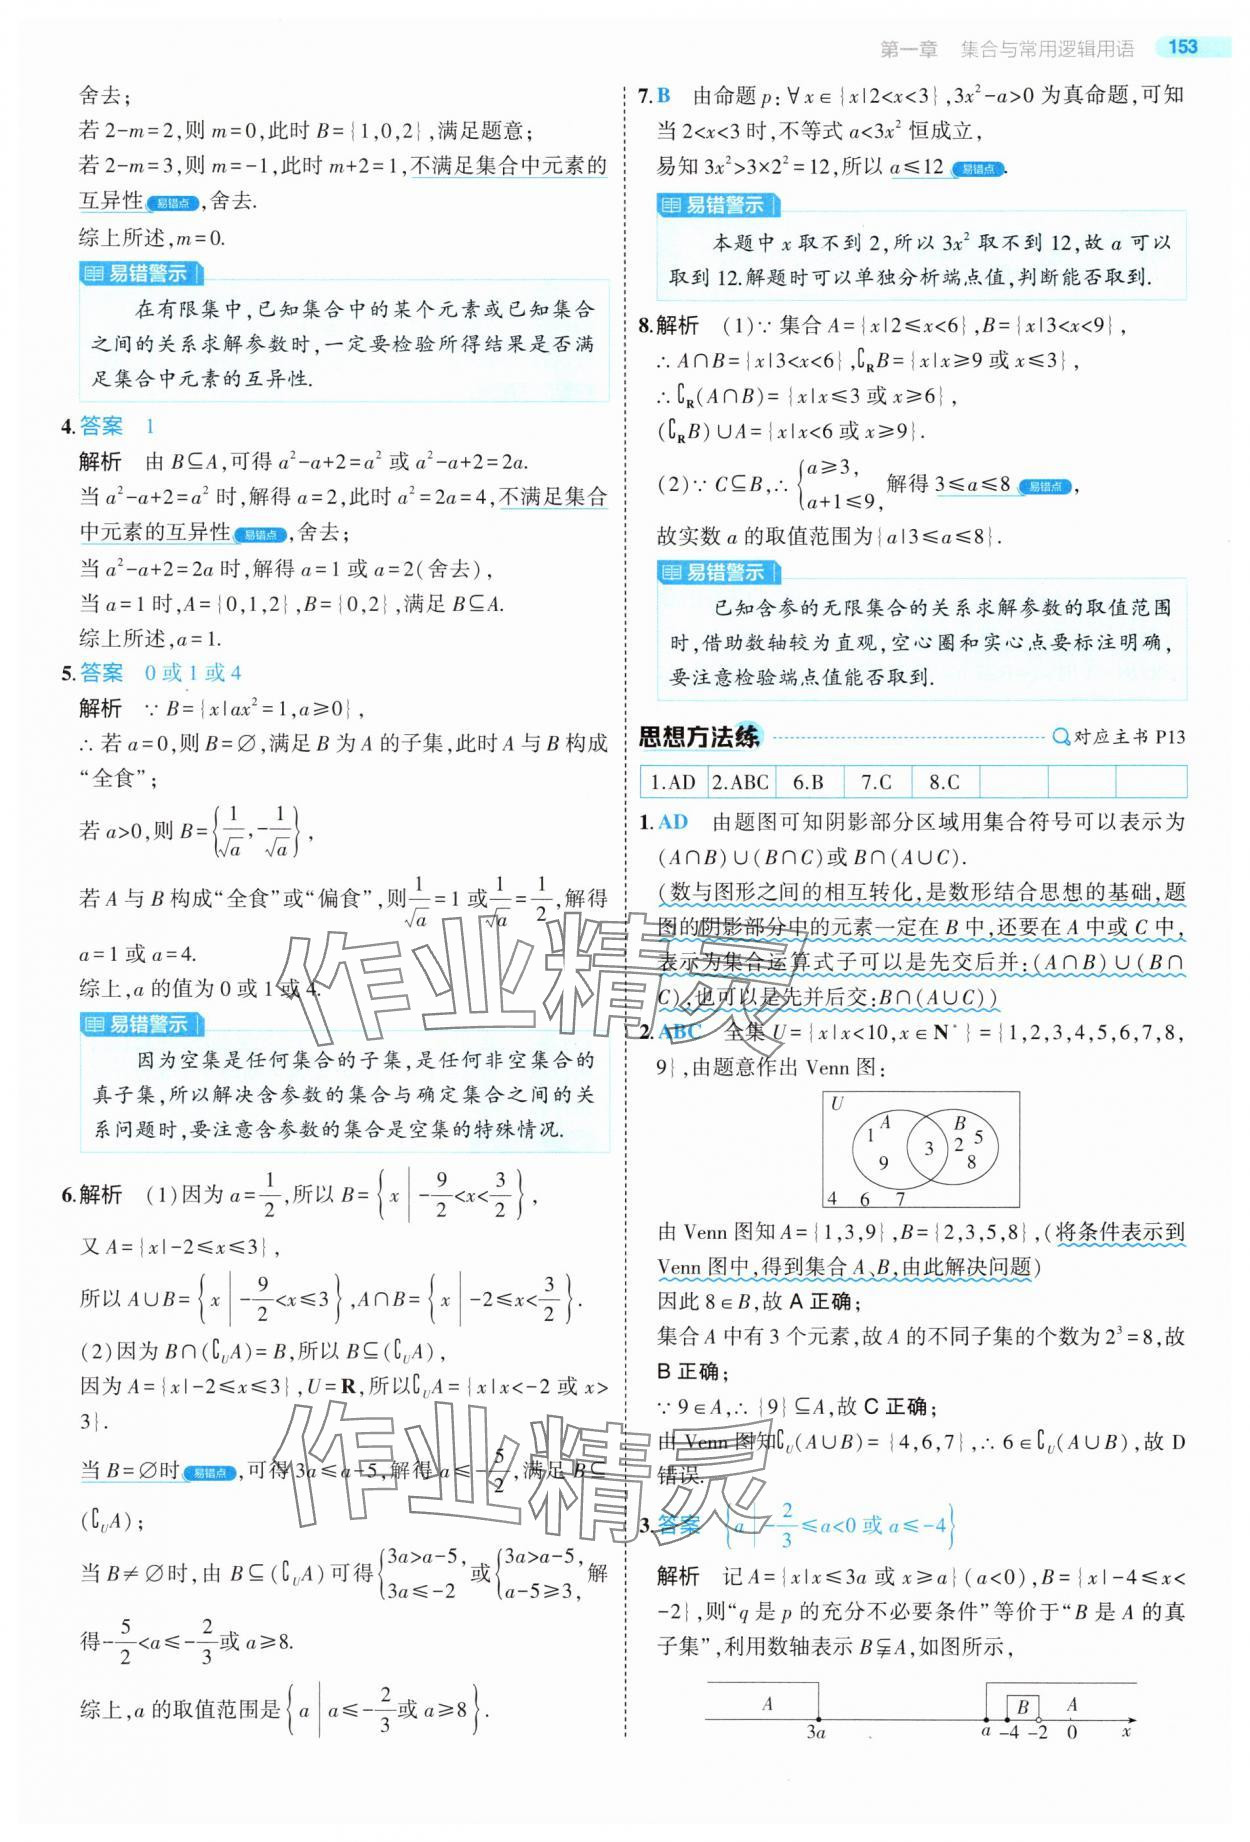 第一章 集合与常用逻辑用语 153
舍去;
若 2-m=2,则 m=0,此时 B={1,0,2},满足题意;
若 2-m=3,则 m=-1,此时 m+2=1,不满足集合中元素的
互异性 易错点 ,舍去.
综上所述,m=0.
易错警示
在有限集中,已知集合中的某个元素或已知集合
之间的关系求解参数时,一定要检验所得结果是否满
足集合中元素的互异性.
4.答案 1
解析 由 B⊆A,可得 a²-a+2=a² 或 a²-a+2=2a.
当 a²-a+2=a² 时,解得 a=2,此时 a²=2a=4,不满足集合
中元素的互异性 易错点 ,舍去;
当 a²-a+2=2a 时,解得 a=1 或 a=2(舍去),
当 a=1 时,A={0,1,2},B={0,2},满足 B⊆A.
综上所述,a=1.
5.答案 0 或 1 或 4
解析 ∵ B={x|ax²=1,a≥0},
∴ 若 a=0,则 B=∅,满足 B 为 A 的子集,此时 A 与 B 构成
“全食”;
若 a>0,则 B={1/√a,-1/√a},
若 A 与 B 构成“全食”或“偏食”,则1/√a=1 或1/√a=1/2,解得
a=1 或 a=4.
综上,a 的值为 0 或 1 或 4.
易错警示
因为空集是任何集合的子集,是任何非空集合的
真子集,所以解决含参数的集合与确定集合之间的关
系问题时,要注意含参数的集合是空集的特殊情况.
6.解析 (1)因为 a=1/2,所以 B={x|-9/2<x<3/2},
又 A={x|-2≤x≤3},
所以 A∪B={x|-9/2<x≤3},A∩B={x|-2≤x<3/2}.
(2)因为 B∩(∁UA)=B,所以 B⊆(∁UA),
因为 A={x|-2≤x≤3},U=R,所以∁UA={x|x<-2 或 x>
3}.
当 B=∅时 易错点 ,可得 3a≤a-5,解得 a≤-5/2,满足 B⊆
(∁UA);
当 B≠∅时,由 B⊆(∁UA)可得{3a>a-5, 3a≤-2 或{3a>a-5, a-5≥3, 解
得-5/2<a≤-2/3或 a≥8.
综上,a 的取值范围是{a|a≤-2/3或 a≥8}.
7.B 由命题 p:∀x∈{x|2<x<3},3x²-a>0 为真命题,可知
当 2<x<3 时,不等式 a<3x² 恒成立,
易知 3x²>3×2²=12,所以 a≤12 易错点 .
易错警示
本题中 x 取不到 2,所以 3x² 取不到 12,故 a 可以
取到 12.解题时可以单独分析端点值,判断能否取到.
8.解析 (1)∵ 集合 A={x|2≤x<6},B={x|3<x<9},
∴ A∩B={x|3<x<6},∁RB={x|x≥9 或 x≤3},
∴ ∁R(A∩B)={x|x≤3 或 x≥6},
(∁RB)∪A={x|x<6 或 x≥9}.
(2)∵ C⊆B,∴ {a≥3, a+1≤9, 解得 3≤a≤8 易错点 ,
故实数 a 的取值范围为{a|3≤a≤8}.
易错警示
已知含参的无限集合的关系求解参数的取值范围
时,借助数轴较为直观,空心圈和实心点要标注明确,
要注意检验端点值能否取到.
思想方法练 对应主书 P13
1.AD 2.ABC 6.B 7.C 8.C
1.AD 由题图可知阴影部分区域用集合符号可以表示为
(A∩B)∪(B∩C)或 B∩(A∪C).
(数与图形之间的相互转化,是数形结合思想的基础,题
图的阴影部分中的元素一定在 B 中,还要在 A 中或 C 中,
表示为集合运算式子可以是先交后并:(A∩B)∪(B∩
C),也可以是先并后交:B∩(A∪C))
2.ABC 全集 U={x|x<10,x∈N*}={1,2,3,4,5,6,7,8,
9},由题意作出 Venn 图:
U
A B
1 3 2 5
9 8
4 6 7
由 Venn 图知 A={1,3,9},B={2,3,5,8},(将条件表示到
Venn 图中,得到集合 A、B,由此解决问题)
因此 8∈B,故 A 正确;
集合 A 中有 3 个元素,故 A 的不同子集的个数为 2³=8,故
B 正确;
∵ 9∈A,∴ {9}⊆A,故 C 正确;
由 Venn 图知∁U(A∪B)={4,6,7},∴ 6∈∁U(A∪B),故 D
错误.
3.答案 {a|-2/3≤a<0 或 a≤-4}
解析 记 A={x|x≤3a 或 x≥a}(a<0),B={x|-4≤x<
-2},则“q 是 p 的充分不必要条件”等价于“B 是 A 的真
子集”,利用数轴表示 B⫋A,如图所示,
A B A
3a a -4 -2 0 x
作业精灵
作业精灵